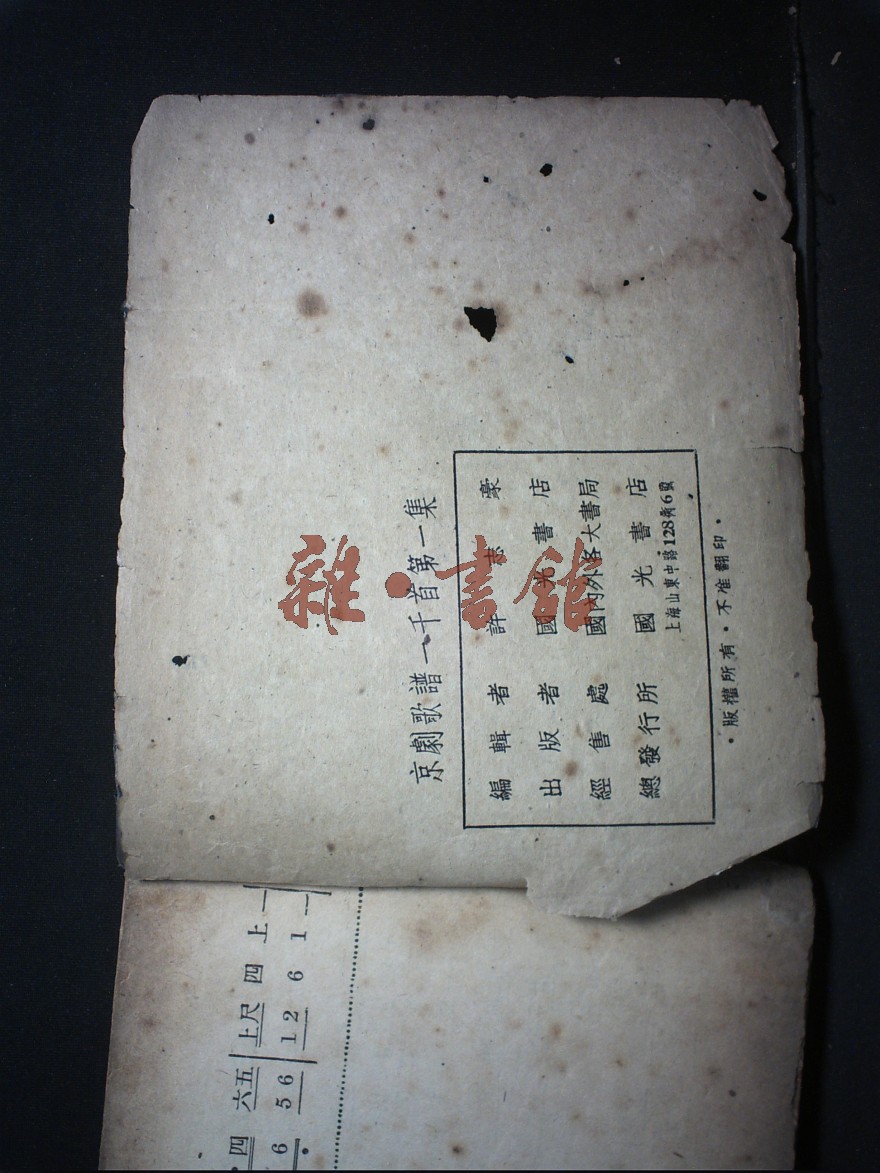 京劇歌譜一千首第一集
編輯者 許志豪
出版者 國光書店
經售處 國內外各大書局
總發行所 國光書店
上海山東中路128弄6號
•版權所有•不准翻印•
四 六五 上尺 四 上
6 56 12 6 1